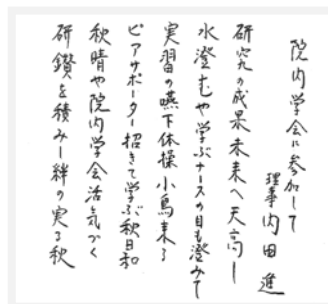 院内学会に参加して
理事 内田進
研究の成果未来へ天高し
水澄むや学ぶナースの目も澄みて
実習の嚥下体操小鳥来る
ピアサポーター招きて学ぶ秋日和
秋晴や院内学会活気づく
研鑽を積みし絆の実る秋